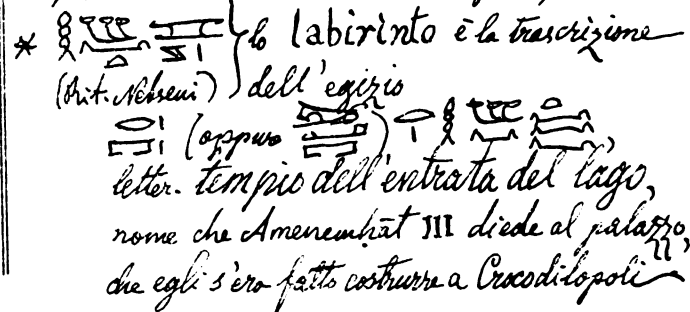 * lo labirinto è la trascrizione
(Rit. Nebseni) dell'egizio
(oppure )
letter. tempio dell'entrata del lago,
nome che Amenemhāt III diede al palazzo,
che egli s'era fatto costrurre a Crocodilopoli